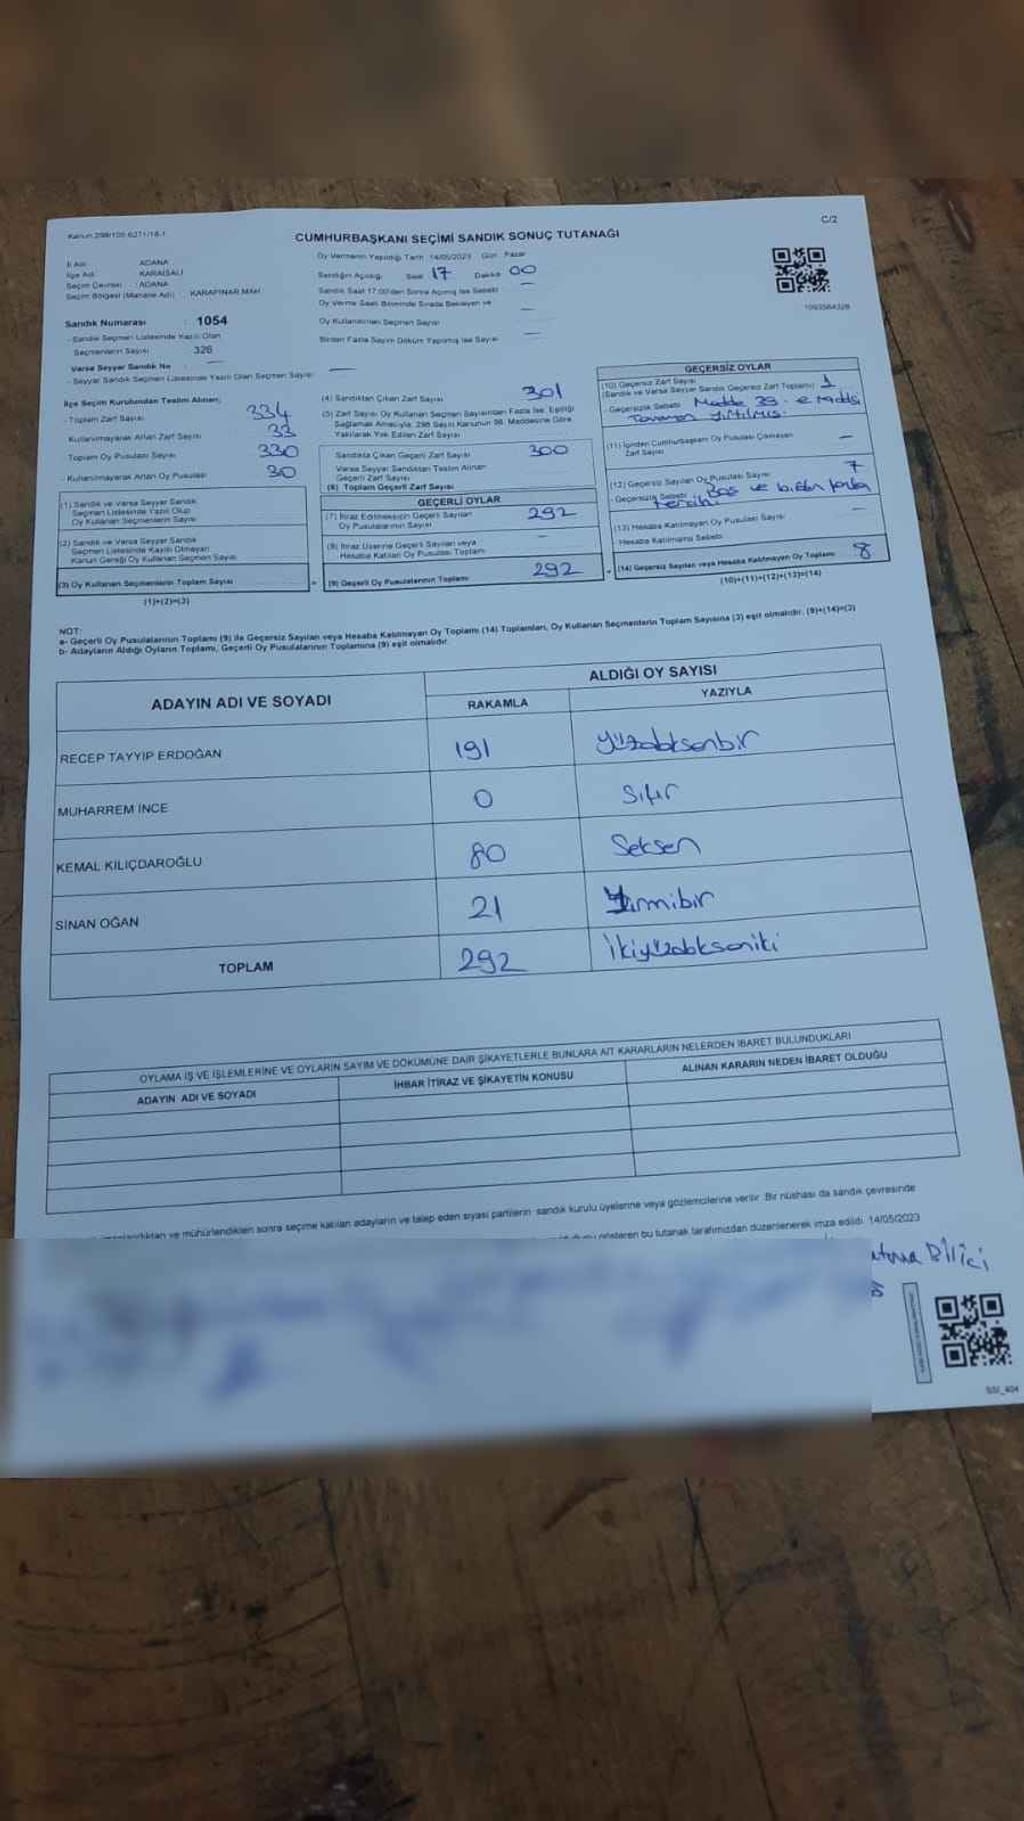 Kanun 298/105-6271/18-1
C/2
CUMHURBAŞKANI SEÇİMİ SANDIK SONUÇ TUTANAĞI
İl Adı : ADANA
İlçe Adı : KARAİSALI
Seçim Çevresi : ADANA
Seçim Bölgesi (Mahalle Adı) : KARAPINAR MAH.
Sandık Numarası : 1054
- Sandık Seçmen Listesinde Yazılı Olan
Seçmenlerin Sayısı : 326
Varsa Seyyar Sandık No
- Seyyar Sandık Seçmen Listesinde Yazılı Olan Seçmen Sayısı
Oy Vermenin Yapıldığı Tarih: 14/05/2023 Gün: Pazar
Sandığın Açılışı: Saat 17 Dakika 00
Sandık Saat 17:00'den Sonra Açılmış İse Sebebi
Oy Verme Saati Bitiminde Sırada Bekleyen ve
Oy Kullandırılan Seçmen Sayısı
Birden Fazla Sayım Döküm Yapılmış İse Sayısı
İlçe Seçim Kurulundan Teslim Alınan;
- Toplam Zarf Sayısı 334
Kullanılmayarak Artan Zarf Sayısı 33
Toplam Oy Pusulası Sayısı 330
- Kullanılmayarak Artan Oy Pusulası 30
(1) Sandık ve Varsa Seyyar Sandık
Seçmen Listesinde Yazılı Olup
Oy Kullanan Seçmenlerin Sayısı
(2) Sandık ve Varsa Seyyar Sandık
Seçmen Listesinde Kayıtlı Olmayan
Kanun Gereği Oy Kullanan Seçmen Sayısı
(3) Oy Kullanan Seçmenlerin Toplam Sayısı
(1)+(2)=(3)
(4) Sandıktan Çıkan Zarf Sayısı 301
(5) Zarf Sayısı Oy Kullanan Seçmen Sayısından Fazla İse, Eşitliği
Sağlamak Amacıyla, 298 Sayılı Kanunun 98. Maddesine Göre
Yakılarak Yok Edilen Zarf Sayısı
Sandıkta Çıkan Geçerli Zarf Sayısı 300
Varsa Seyyar Sandıktan Teslim Alınan
Geçerli Zarf Sayısı
(6) Toplam Geçerli Zarf Sayısı
GEÇERLİ OYLAR
(7) İtiraz Edilmeksizin Geçerli Sayılan
Oy Pusulalarının Sayısı 292
(8) İtiraz Üzerine Geçerli Sayılan veya
Hesaba Katılan Oy Pusulası Toplamı
(9) Geçerli Oy Pusulalarının Toplamı 292
1093564328
GEÇERSİZ OYLAR
(10) Geçersiz Zarf Sayısı
(Sandık ve Varsa Seyyar Sandık Geçersiz Zarf Toplamı) 1
- Geçersizlik Sebebi Madde 39. e maddesi
Tamamen yırtılmış.
(11) İçinden Cumhurbaşkanı Oy Pusulası Çıkmayan
Zarf Sayısı
(12) Geçersiz Sayılan Oy Pusulası Sayısı 7
- Geçersizlik Sebebi Boş ve birden fazla
tercih
(13) Hesaba Katılmayan Oy Pusulası Sayısı
Hesaba Katılmama Sebebi
(14) Geçersiz Sayılan veya Hesaba Katılmayan Oy Toplamı 8
(10)+(11)+(12)+(13)=(14)
NOT:
a- Geçerli Oy Pusulalarının Toplamı (9) ile Geçersiz Sayılan veya Hesaba Katılmayan Oy Toplamı (14) Toplamları, Oy Kullanan Seçmenlerin Toplam Sayısına (3) eşit olmalıdır. (9)+(14)=(3)
b- Adayların Aldığı Oyların Toplamı, Geçerli Oy Pusulalarının Toplamına (9) eşit olmalıdır.
ADAYIN ADI VE SOYADI
ALDIĞI OY SAYISI
RAKAMLA YAZIYLA
RECEP TAYYİP ERDOĞAN 191 yüzdoksanbir
MUHARREM İNCE 0 Sıfır
KEMAL KILIÇDAROĞLU 80 Seksen
SİNAN OĞAN 21 Yirmibir
TOPLAM 292 İkiyüzdoksaniki
OYLAMA İŞ VE İŞLEMLERİNE VE OYLARIN SAYIM VE DÖKÜMÜNE DAİR ŞİKAYETLERLE BUNLARA AİT KARARLARIN NELERDEN İBARET BULUNDUKLARI
ADAYIN ADI VE SOYADI İHBAR İTİRAZ VE ŞİKAYETİN KONUSU ALINAN KARARIN NEDEN İBARET OLDUĞU
ve mühürlendikten sonra seçime katılan adayların ve talep eden siyasi partilerin sandık kurulu üyelerine veya gözlemcilerine verilir. Bir nüshası da sandık çevresinde
gösteren bu tutanak tarafımızdan düzenlenerek imza edildi. 14/05/2023
Bilici
SSİ_404